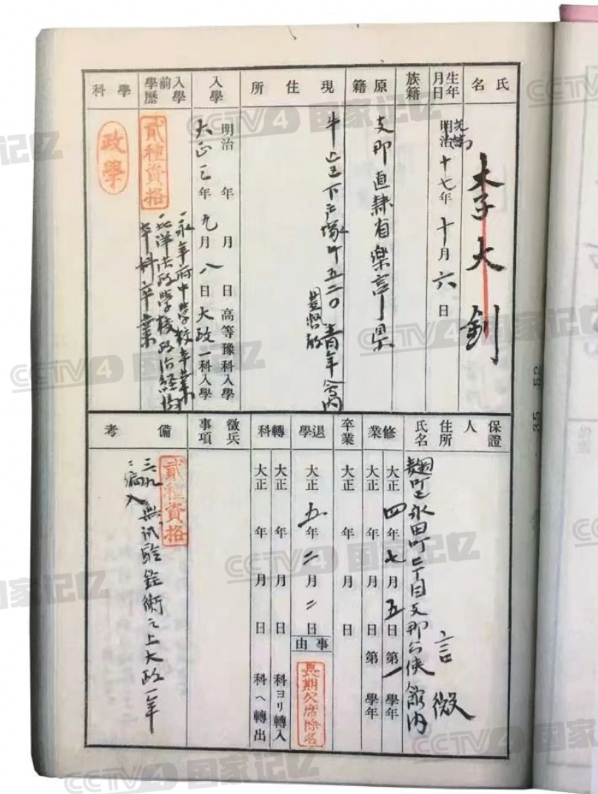 氏名
李大釗
生年月日
光緒
明治十七年十月六日
族籍
原籍
支那直隷省楽亭県
現住所
牛込区下戸塚町五二〇青年会内
入學
明治 年 月 日高等豫科入學
大正三年九月八日大政一科入學
入學前學歷
貳種資格
永年府中學校卒業
北洋法政學校政治経済
本科卒業
學科
政學
保證人
住所
氏名
麹町区永田町
支那公使館内
言微
修業
大正四年七月五日第一學年
大正 年 月 日第 學年
卒業
大正 年 月 日
退學
大正五年二月二日
事由
長期欠席除名
轉科
大正 年 月 日 科ヨリ轉入
大正 年 月 日 科ヘ轉出
徵兵事項
備考
貳種資格
三、九、無試驗銓衡之上大政一年
編入
CCTV4 国家记忆